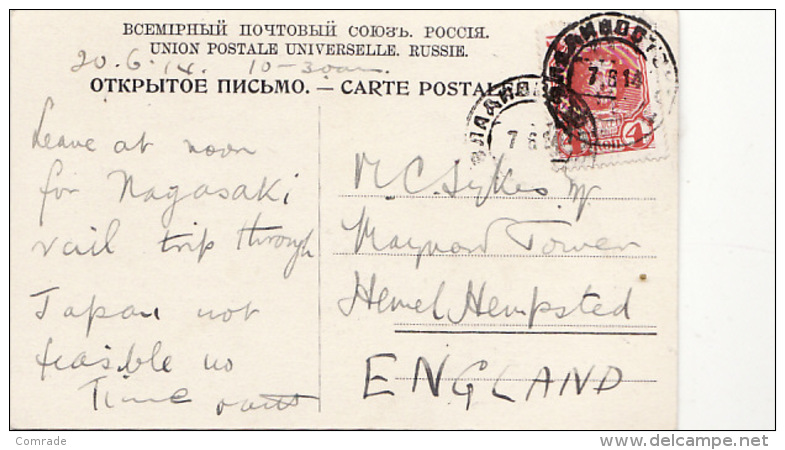 ВСЕМІРНЫЙ ПОЧТОВЫЙ СОЮЗЪ. РОССІЯ.
UNION POSTALE UNIVERSELLE. RUSSIE.
20.6.14. 10-30am.
ОТКРЫТОЕ ПИСЬМО. — CARTE POSTALE
ВЛАДИВОСТО
7 6 14
ВЛАДИВО
7 6 14
4 КОП 4
Leave at noon
for Nagasaki
rail trip through
Japan not
feasible no
Time
M.C. Sykes
Maynard Tower
Hemel Hempsted
ENGLAND
Comrade
www.delcampe.net